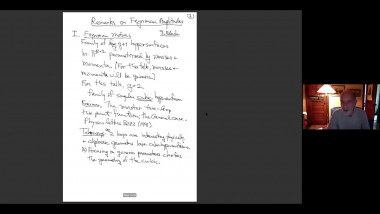 Remarks on Feynman Amplitudes
I. Feynman Motives
Family of deg g+1 hypersurfaces
in parametrized by masses +
momenta. [For this talk, masses +
momenta will be generic]
For this talk, g=2
family of singular cubic hypersurfaces
The master two-loop
two point function. The General case.
Physics Letters
2 loops are interesting physically
+ algebraic geometers love cubic hypersurfaces
Focusing on generic parameters clarifies
the geometry of the cubic.